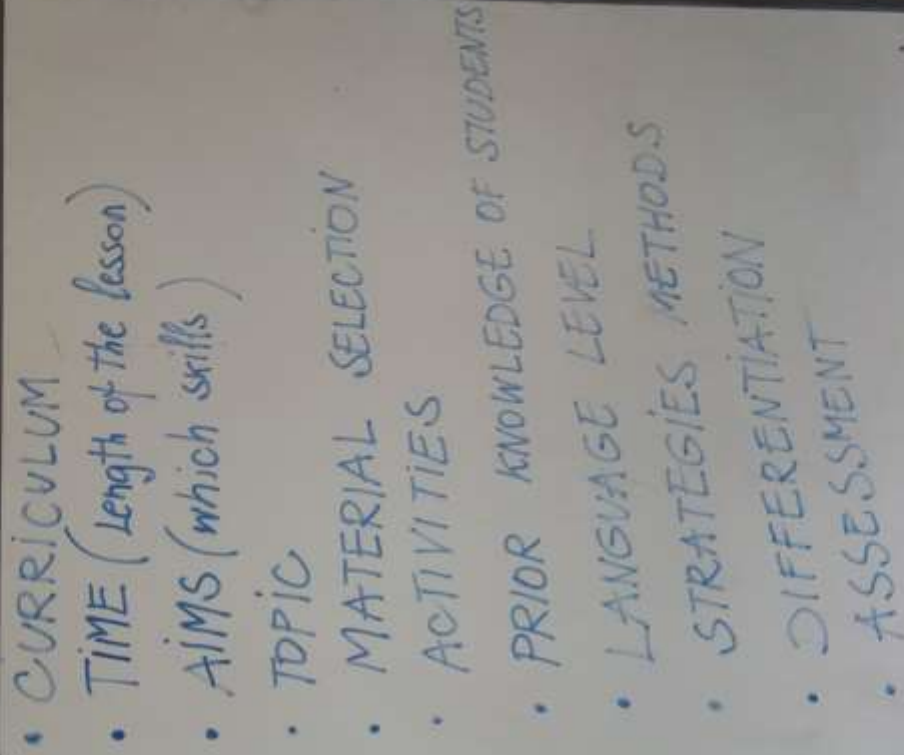 • CURRICULUM
• TIME (Length of the lesson)
• AIMS (which skills)
• TOPIC
• MATERIAL SELECTION
• ACTIVITIES
• PRIOR KNOWLEDGE OF STUDENTS
• LANGUAGE LEVEL
• STRATEGIES METHODS
• DIFFERENTIATION
• ASSESSMENT